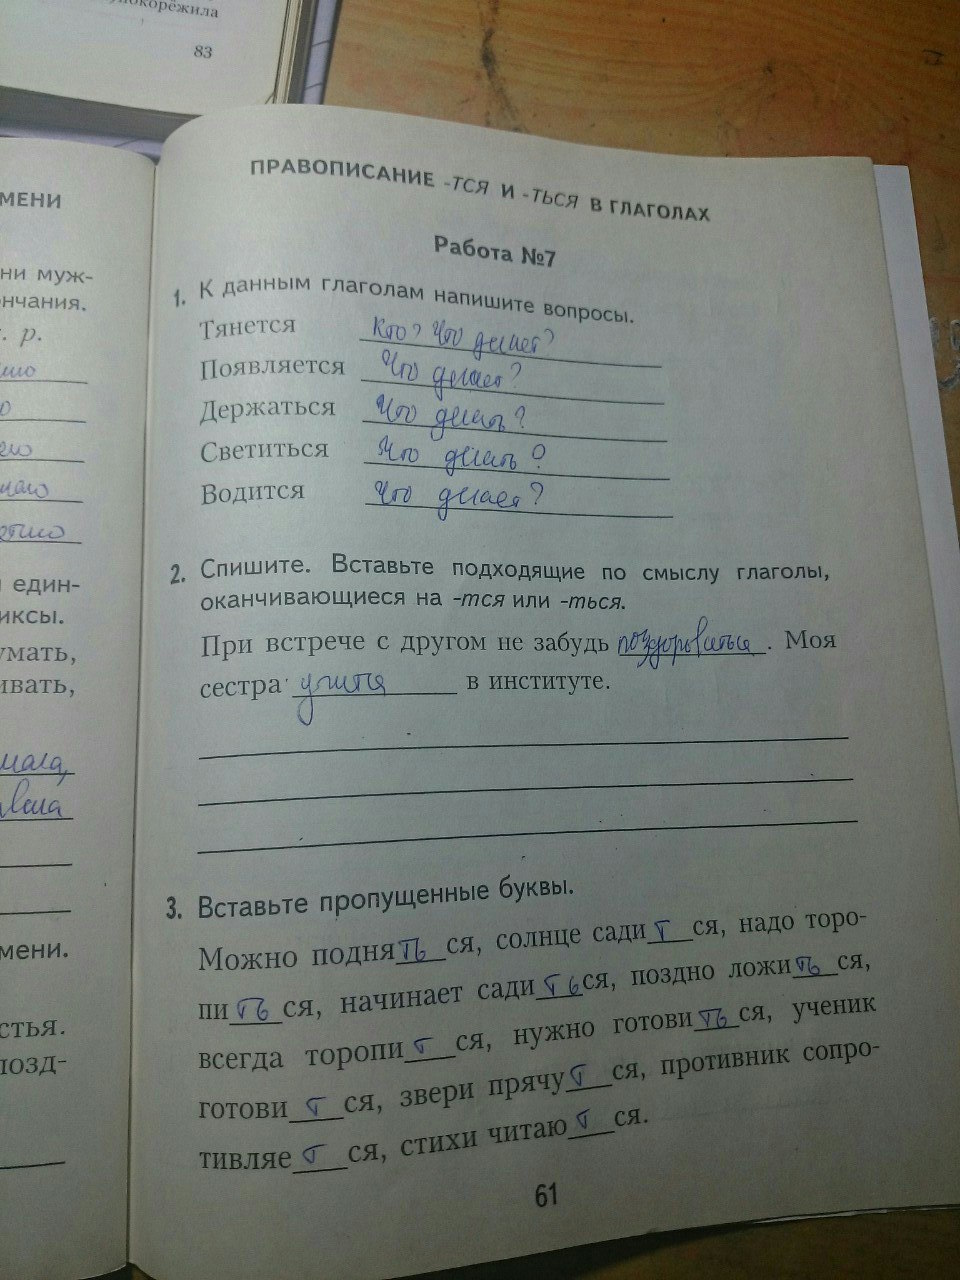 покорёжила
83
МЕНИ
ни муж-
нчания.
. р.
о
един-
иксы.
умать,
ивать,
мала,
вела
мени.
стья.
позд-
ПРАВОПИСАНИЕ -ТСЯ И -ТЬСЯ В ГЛАГОЛАХ
Работа №7
1. К данным глаголам напишите вопросы.
Тянется Кто? Что делает?
Появляется Что делает?
Держаться Что делать?
Светиться Что делать?
Водится Что делает?
2. Спишите. Вставьте подходящие по смыслу глаголы,
оканчивающиеся на -тся или -ться.
При встрече с другом не забудь поздороваться. Моя
сестра учится в институте.
3. Вставьте пропущенные буквы.
Можно подняться, солнце садится, надо торо-
питься, начинает садиться, поздно ложиться,
всегда торопится, нужно готовиться, ученик
готовится, звери прячутся, противник сопро-
тивляется, стихи читаются.
61